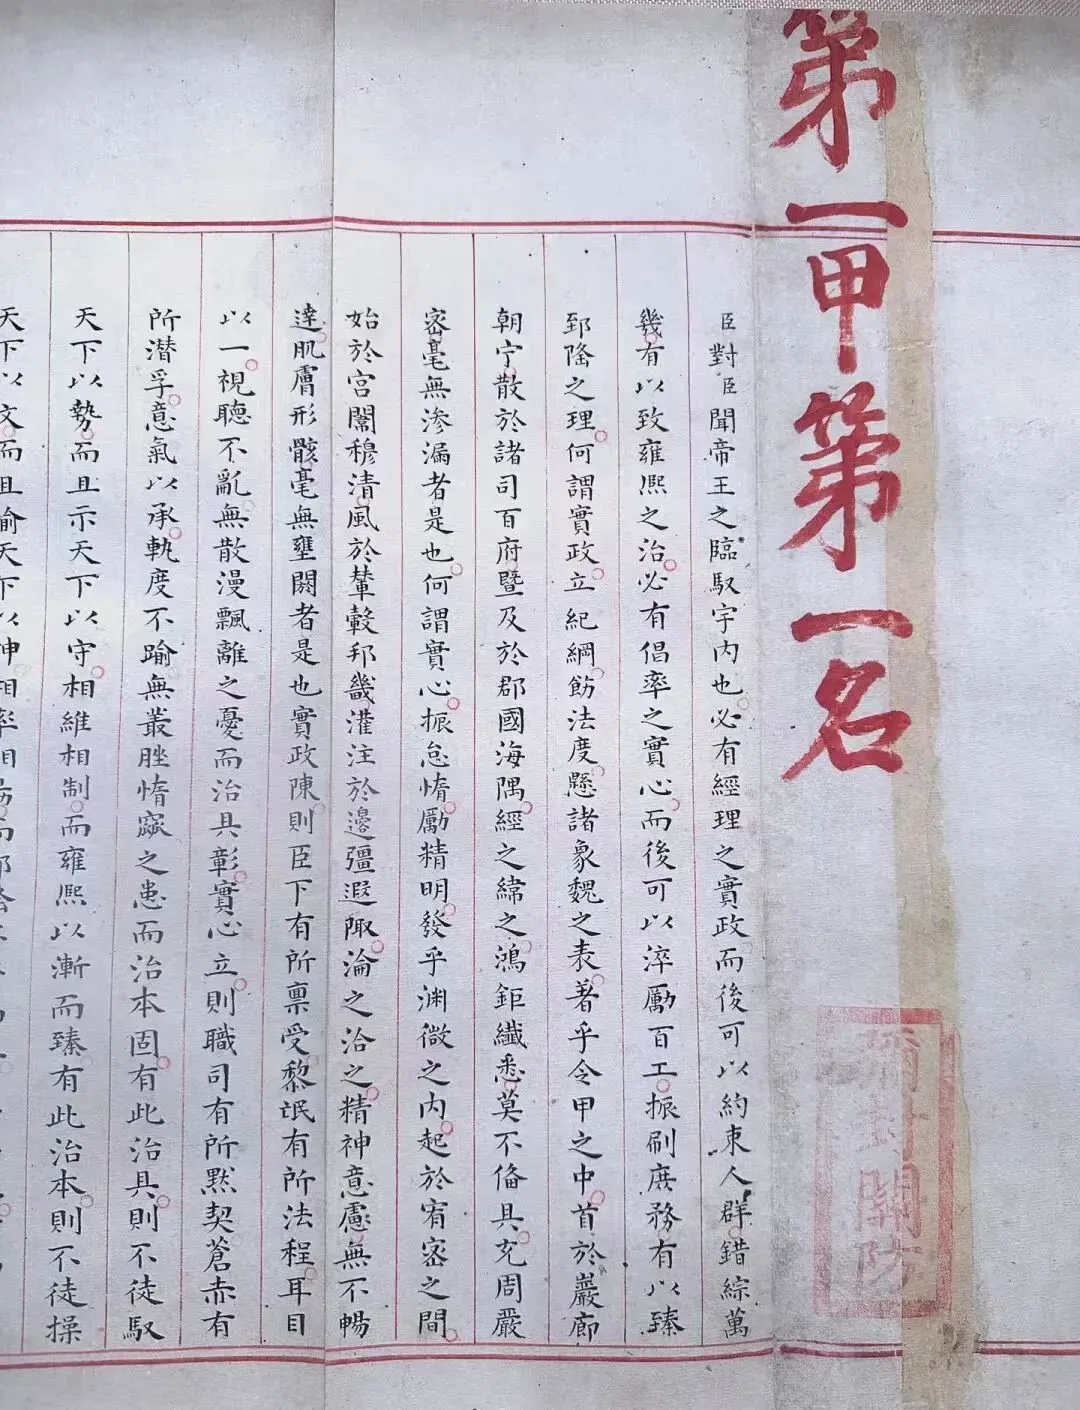 第一甲第一名
臣對臣聞帝王之臨馭宇内也必有經理之實政而後可以約束人群錯綜萬
幾有以致雍熙之治必有倡率之實心而後可以淬勵百工振刷庶務有以臻
郅隆之理何謂實政立紀綱飭法度懸諸象魏之表著乎令甲之中首於巖廊
朝宁散於諸司百府暨及於郡國海隅經之緯之鴻鉅纖悉莫不俻具充周嚴
宻毫無渗漏者是也何謂實心振怠惰勵精明發乎渊微之内起於宥宻之間
始於宫闈穆清風於輦轂邦畿灌注於邊疆遐陬淪之洽之精神意慮無不暢
達肌膚形骸毫無壅閼者是也實政陳則臣下有所禀受黎氓有所法程耳目
以一視聽不亂無散漫飄離之憂而治具彰實心立則職司有所黙契蒼赤有
所潜孚意氣以承軌度不踰無叢脞惰窳之患而治本固有此治具則不徒馭
天下以勢而且示天下以守相維相制而雍熙以漸而臻有此治本則不徒操
天下以文而且喻天下以神相率相勗而郅隆
關防